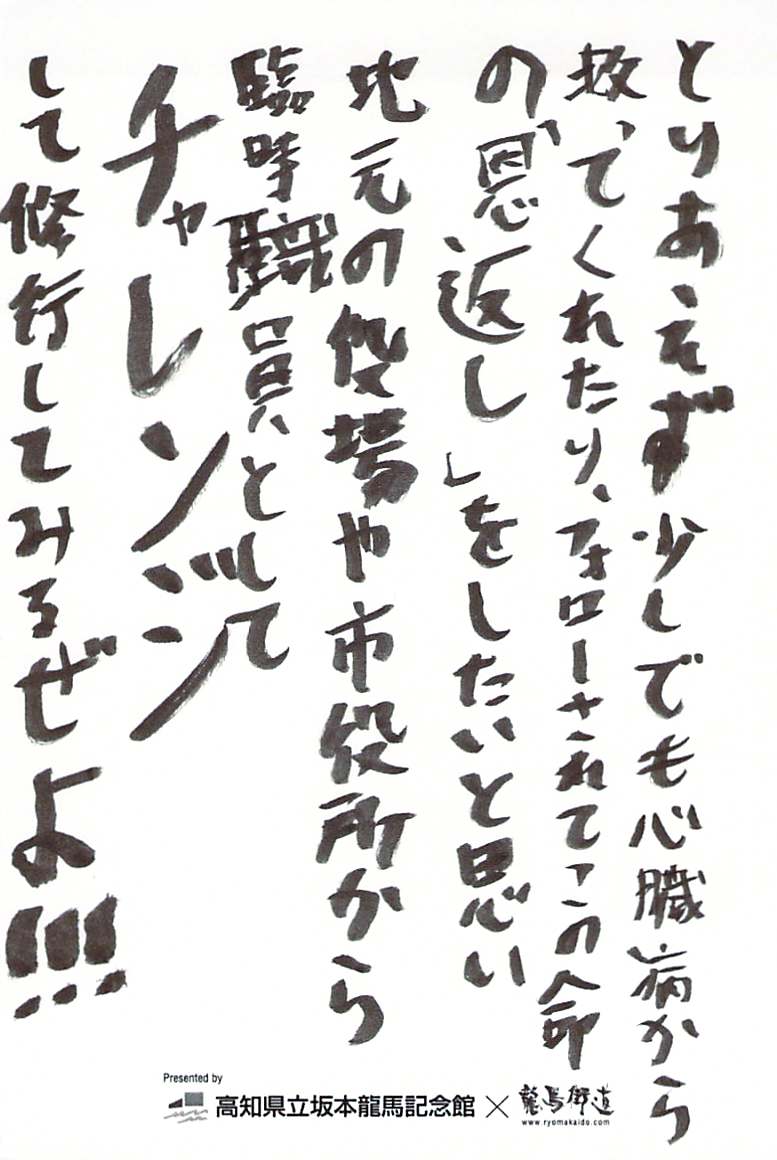 とりあえず少しでも心臓病から
救ってくれたり、フォローされてこの命
の「恩返し」をしたいと思い
地元の役場や市役所から
臨時職員として
チャレンジ
して修行してみるぜよ!!!
Presented by
高知県立坂本龍馬記念館×龍馬街道
www.ryomakaido.com